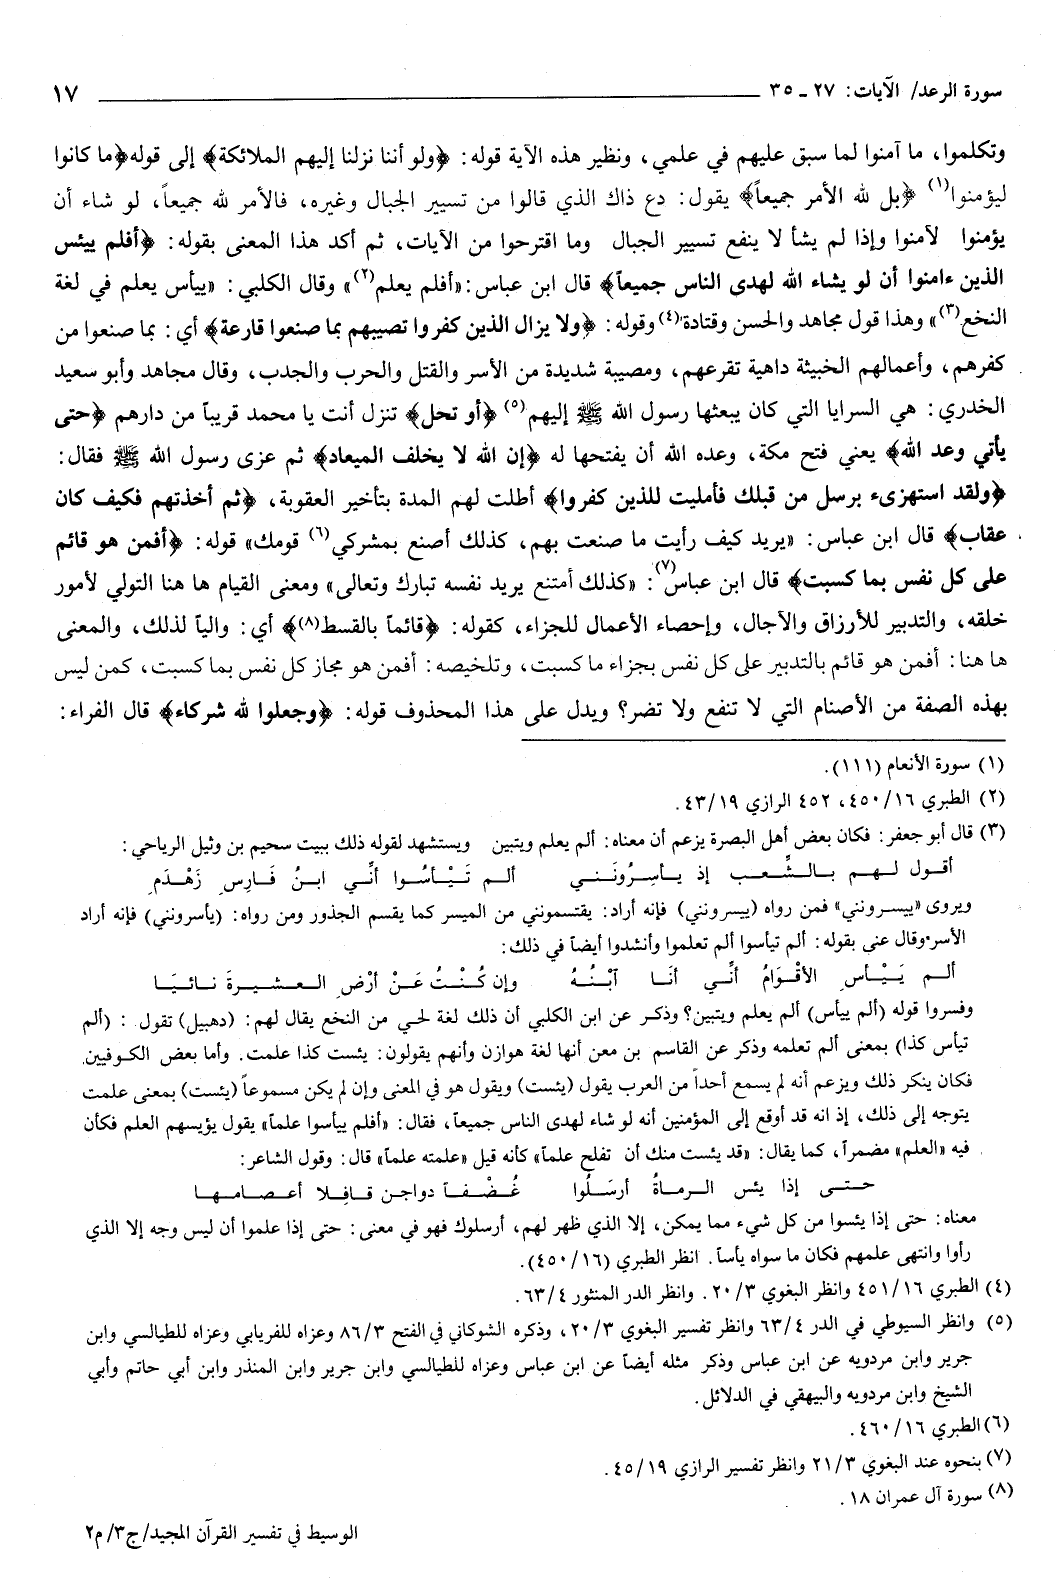 سورة الرعد/ الآيات: ٢٧ ـ ٣٥ ١٧
وتكلموا، ما آمنوا لما سبق عليهم في علمي، ونظير هذه الآية قوله: ﴿ولو أننا نزلنا إليهم الملائكة﴾ إلى قوله﴿ما كانوا
ليؤمنوا(١) ﴿بل لله الأمر جميعاً﴾ يقول: دع ذاك الذي قالوا من تسيير الجبال وغيره، فالأمر لله جميعاً، لو شاء أن
يؤمنوا لآمنوا وإذا لم يشأ لا ينفع تسيير الجبال وما اقترحوا من الآيات، ثم أكد هذا المعنى بقوله: ﴿أفلم ييئس
الذين ءامنوا أن لو يشاء الله لهدى الناس جميعاً﴾ قال ابن عباس: «أفلم يعلم(٢)» وقال الكلبي: «ييأس يعلم في لغة
النخع(٣)» وهذا قول مجاهد والحسن وقتادة(٤) وقوله: ﴿ولا يزال الذين كفروا تصيبهم بما صنعوا قارعة﴾ أي: بما صنعوا من
كفرهم، وأعمالهم الخبيثة داهية تقرعهم، ومصيبة شديدة من الأسر والقتل والحرب والجدب، وقال مجاهد وأبو سعيد
الخدري: هي السرايا التي كان يبعثها رسول الله ﷺ إليهم(٥) ﴿أو تحل﴾ تنزل أنت يا محمد قريباً من دارهم ﴿حتى
يأتي وعد الله﴾ يعني فتح مكة، وعده الله أن يفتحها له ﴿إن الله لا يخلف الميعاد﴾ ثم عزى رسول الله ﷺ فقال:
﴿ولقد استهزىء برسل من قبلك فأمليت للذين كفروا﴾ أطلت لهم المدة بتأخير العقوبة، ﴿ثم أخذتهم فكيف كان
عقاب﴾ قال ابن عباس: «يريد كيف رأيت ما صنعت بهم، كذلك أصنع بمشركي(٦) قومك» قوله: ﴿أفمن هو قائم
على كل نفس بما كسبت﴾ قال ابن عباس(٧): «كذلك أمتنع يريد نفسه تبارك وتعالى» ومعنى القيام ها هنا التولي لأمور
خلقه، والتدبير للأرزاق والآجال، وإحصاء الأعمال للجزاء، كقوله: ﴿قائماً بالقسط(٨)﴾ أي: والياً لذلك، والمعنى
ها هنا: أفمن هو قائم بالتدبير على كل نفس بجزاء ما كسبت، وتلخيصه: أفمن هو مجاز كل نفس بما كسبت، كمن ليس
بهذه الصفة من الأصنام التي لا تنفع ولا تضر؟ ويدل على هذا المحذوف قوله: ﴿وجعلوا لله شركاء﴾ قال الفراء:
(١) سورة الأنعام (١١١).
(٢) الطبري ٤٥٠/١٦، ٤٥٢ الرازي ٤٣/١٩.
(٣) قال أبو جعفر: فكان بعض أهل البصرة يزعم أن معناه: ألم يعلم ويتبين ويستشهد لقوله ذلك ببيت سحيم بن وثيل الرياحي:
أقول لهم بالشِّعب إذ يأسِرُونَني ألم تَيْأسُوا أنِّي ابنُ فَارِسِ زَهْدَمِ
ويروى «ييسرونني» فمن رواه (ييسرونني) فإنه أراد: يقتسمونني من الميسر كما يقسم الجذور ومن رواه: (يأسرونني) فإنه أراد
الأسر وقال عنى بقوله: ألم تيأسوا ألم تعلموا وأنشدوا أيضاً في ذلك:
ألم يَيْأسِ الأقْوَامُ أنِّي أنَا آبْنُهُ وإن كُنْتُ عَنْ أرْضِ العشيرةَ نائيَا
وفسروا قوله (ألم ييأس) ألم يعلم ويتبين؟ وذكر عن ابن الكلبي أن ذلك لغة لحي من النخع يقال لهم: (دهبيل) تقول : (ألم
تيأس كذا) بمعنى ألم تعلمه وذكر عن القاسم بن معن أنها لغة هوازن وأنهم يقولون: يئست كذا علمت. وأما بعض الكوفيين
فكان ينكر ذلك ويزعم أنه لم يسمع أحداً من العرب يقول (يئست) ويقول هو في المعنى وإن لم يكن مسموعاً (يئست) بمعنى علمت
يتوجه إلى ذلك، إذ انه قد أوقع إلى المؤمنين أنه لو شاء لهدى الناس جميعاً، فقال: «أفلم ييأسوا علماً» يقول يؤيسهم العلم فكأن
فيه «العلم» مضمراً، كما يقال: «قد يئست منك أن تفلح علماً» كأنه قيل «علمته علماً» قال: وقول الشاعر:
حتى إذا يئس الرماةُ أرسَلُوا غُضْفاً دواجن قافلا أعصامها
معناه: حتى إذا يئسوا من كل شيء مما يمكن، إلا الذي ظهر لهم، أرسلوك فهو في معنى: حتى إذا علموا أن ليس وجه إلا الذي
رأوا وانتهى علمهم فكان ما سواه يأساً. انظر الطبري (٤٥٠/١٦).
(٤) الطبري ٤٥١/١٦ وانظر البغوي ٢٠/٣. وانظر الدر المنثور ٦٣/٤.
(٥) وانظر السيوطي في الدر ٦٣/٤ وانظر تفسير البغوي ٢٠/٣، وذكره الشوكاني في الفتح ٨٦/٣ وعزاه للفريابي وعزاه للطيالسي وابن
جرير وابن مردويه عن ابن عباس وذكر مثله أيضاً عن ابن عباس وعزاه للطيالسي وابن جرير وابن المنذر وابن أبي حاتم وأبي
الشيخ وابن مردويه والبيهقي في الدلائل.
(٦) الطبري ٤٦٠/١٦.
(٧) بنحوه عند البغوي ٢١/٣ وانظر تفسير الرازي ٤٥/١٩.
(٨) سورة آل عمران ١٨.
الوسيط في تفسير القرآن المجيد/ج٣/م٢